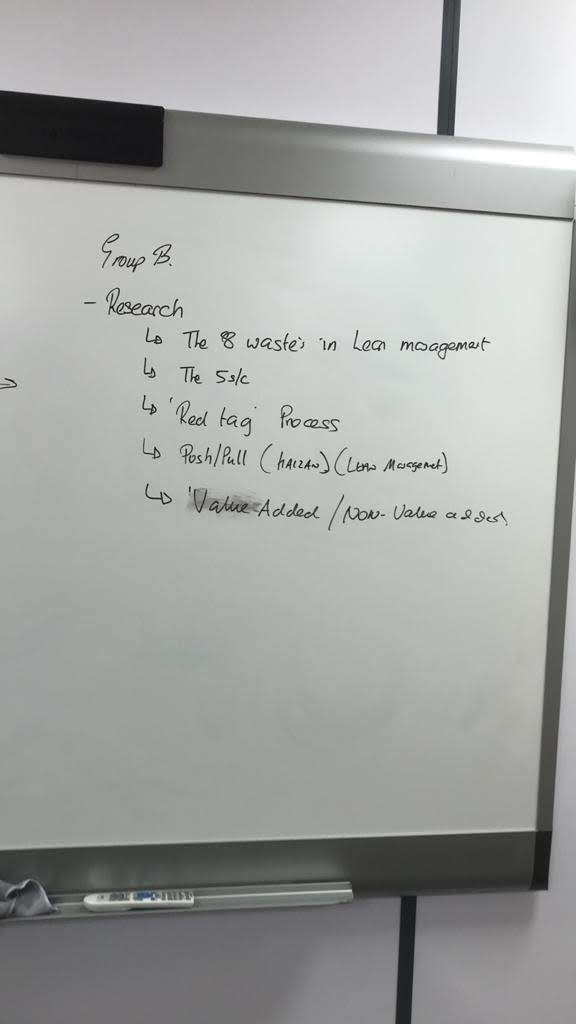 Group B.
- Research
↳ The 8 waste's in Lean management
↳ The 5s/c
↳ 'Red tag' Process
↳ Push/Pull (KAIZAN) (LEAN Management)
↳ 'Value Added / NON-Value added